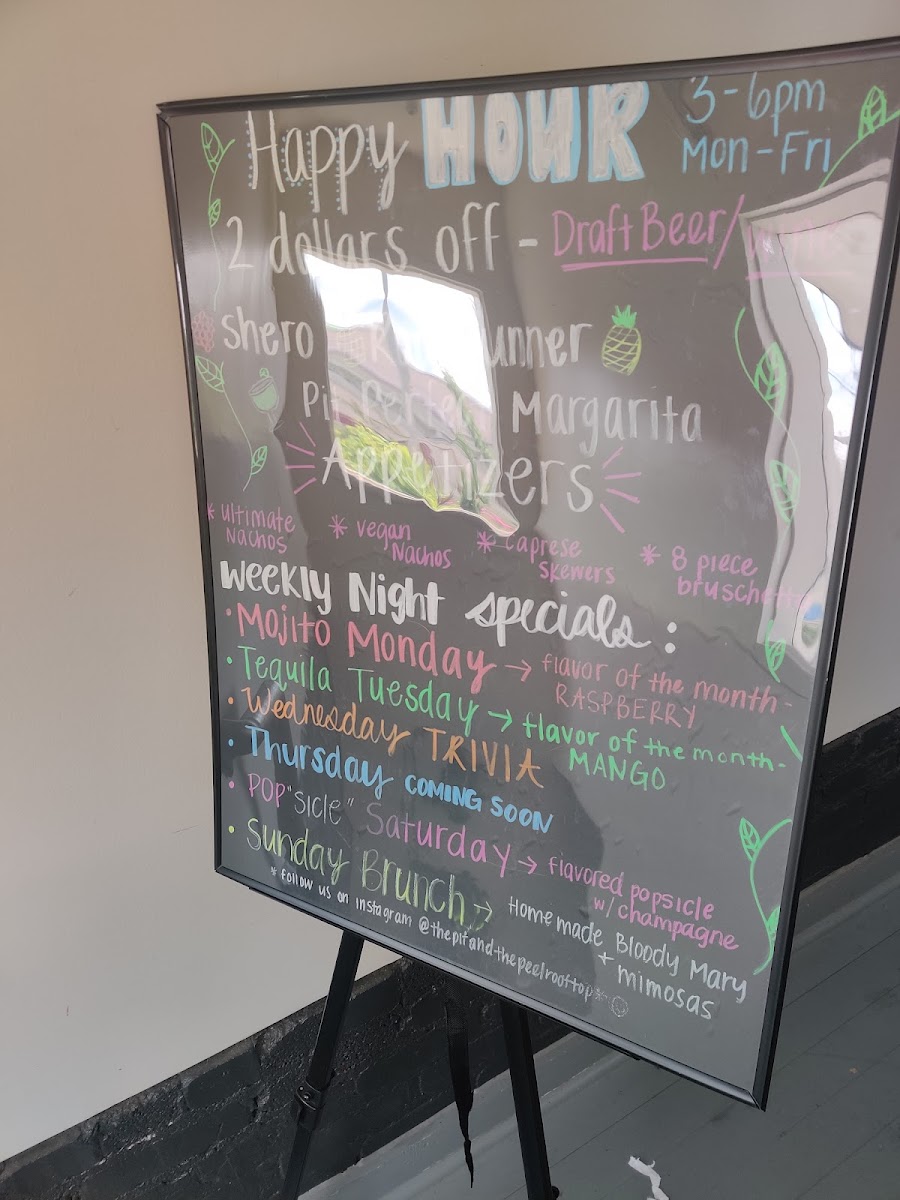 Happy HOUR 3-6pm
Mon-Fri
2 dollars off - Draft Beer/
shero unner
Pit Perfect Margarita
Appetizers
* ultimate Nachos * vegan Nachos * caprese skewers * 8 piece bruschetta
Weekly Night specials:
• Mojito Monday → flavor of the month-
RASPBERRY
• Tequila Tuesday → flavor of the month-
MANGO
• Wednesday TRIVIA
• Thursday COMING SOON
• POP"sicle" Saturday → flavored popsicle
w/champagne
• Sunday Brunch → Homemade Bloody Mary
+ mimosas
* follow us on instagram @thepitandthepeelrooftop